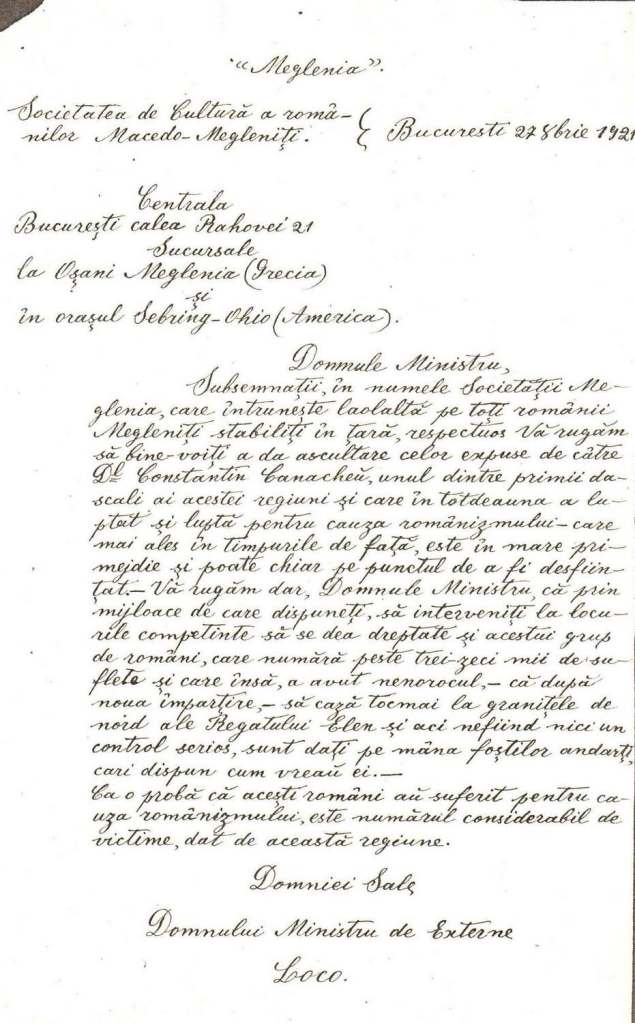 "Meglenia".
Societatea de Cultură a româ-
nilor Macedo-Megleniți. { Bucuresti 27 8brie 1921
Centrala
București calea Rahovei 21
Sucursale
la Oșani Meglenia (Grecia)
și
în orașul Sebring-Ohio (America).
Donmule Ministru,
Subsemnații, în numele Societății Me-
glenia, care întrunește laolaltă pe toți românii
Megleniți stabiliți în țară, respectuos Vă rugăm
să bine-voiți a da ascultare celor expuse de către
Dl Constantin Canacheŭ, unul dintre primii da-
scali ai acestei regiuni și care în totdeauna a lu-
ptat și luptă pentru cauza românizmului - care
mai ales în timpurile de față, este în mare pri-
mejdie și poate chiar pe punctul de a fi desfiin-
țat.- Vă rugăm dar, Domnule Ministru, că prin
mijloace de care dispuneți, să interveniți la locu-
rile competinte să se dea dreptate și acestui grup
de români, care numără peste trei-zeci mii de su-
flete și care însă, a avut nenorocul, - că după
noua împărțire, - să cază tocmai la granițele de
nord ale Regatului Elen și aci nefiind nici un
control serios, sunt dați pe mâna foștilor andarți,
cari dispun cum vreaŭ ei.—
Ca o probă că acești români aŭ suferit pentru ca-
uza românizmului, este numărul considerabil de
victime, dat de această regiune.
Domniei Sale
Domnului Ministru de Externe
Loco.